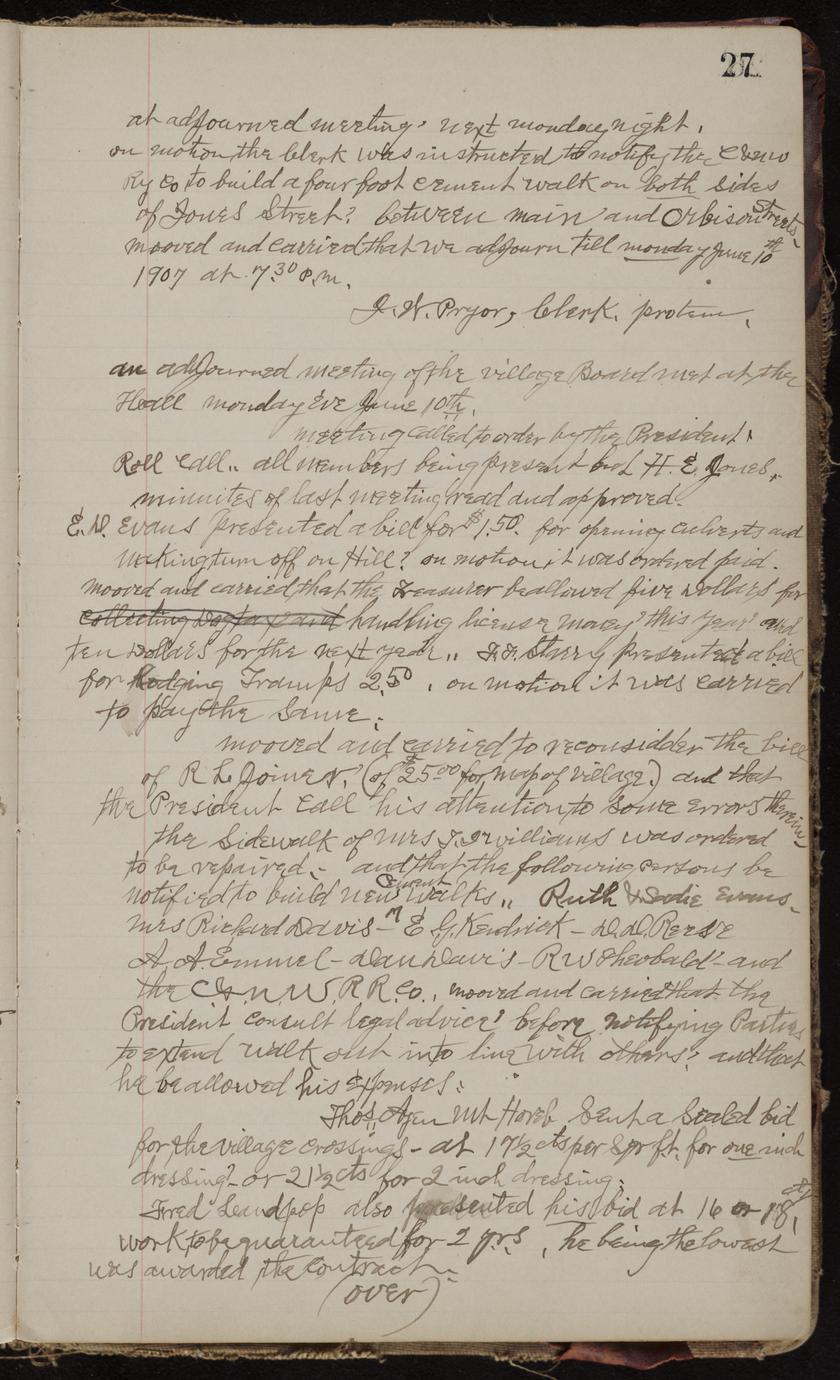 27
at adjourned meeting, next monday night.
on motion the Clerk was instructed to notify the C & N W
Ry Co to build a four foot cement walk on both sides
of Jones Street? between main and Orbison Streets
mooved and carried that we adjourn till monday June 10th
1907 at 7.30 P.m.
J. N. Pryor, Clerk. protem.
an adjourned meeting of the village Board met at the
Hall monday Eve June 10th.
meeting called to order by the President.
Roll Call.. all members being present but H. E. Jones.
minnites of last meeting read and approved.
E. W. Evans presented a bill for $1.50. for opening culverts and
making turn off on Hill? on motion it was ordered paid.
mooved and carried that the Treasurer be allowed five Dollars for
collecting Dog tax and handling license money this year and
ten Dollars for the next year.. presented a bill
for Lodging Tramps 2.50. on motion it was carried
to pay the same.
mooved and carried to reconsidder the bill
of R L Joiner. (of $25.00 for map of village.) and that
the President call his attention to some errors therein
the sidewalk of Mrs williams was ordered
to be repaired. and that the following persons be
notified to build new Cement walks.. Ruth & Sadie Evans-
Mrs Richard Davis - E G. Kendrick - D. D. Reese
A. A. Emmel - Dan Davis - R W Theobald - and
the C & N. W. R R. Co., mooved and carried that the
President consult legal advice? before notifying Parties
to extend walk out into line with others? and that
he be allowed his Expenses:
Thos. Mt Horeb Sent a Sealed bid
for the village crossings - at 17½ cts per Sqr ft. for one inch
dressing? or 21½ cts for 2 inch dressing:
Fred also presented his bid at 16 or 18 cts,
work to be guaranteed for 2 yrs, he being the lowest
was awarded the contract
(over)